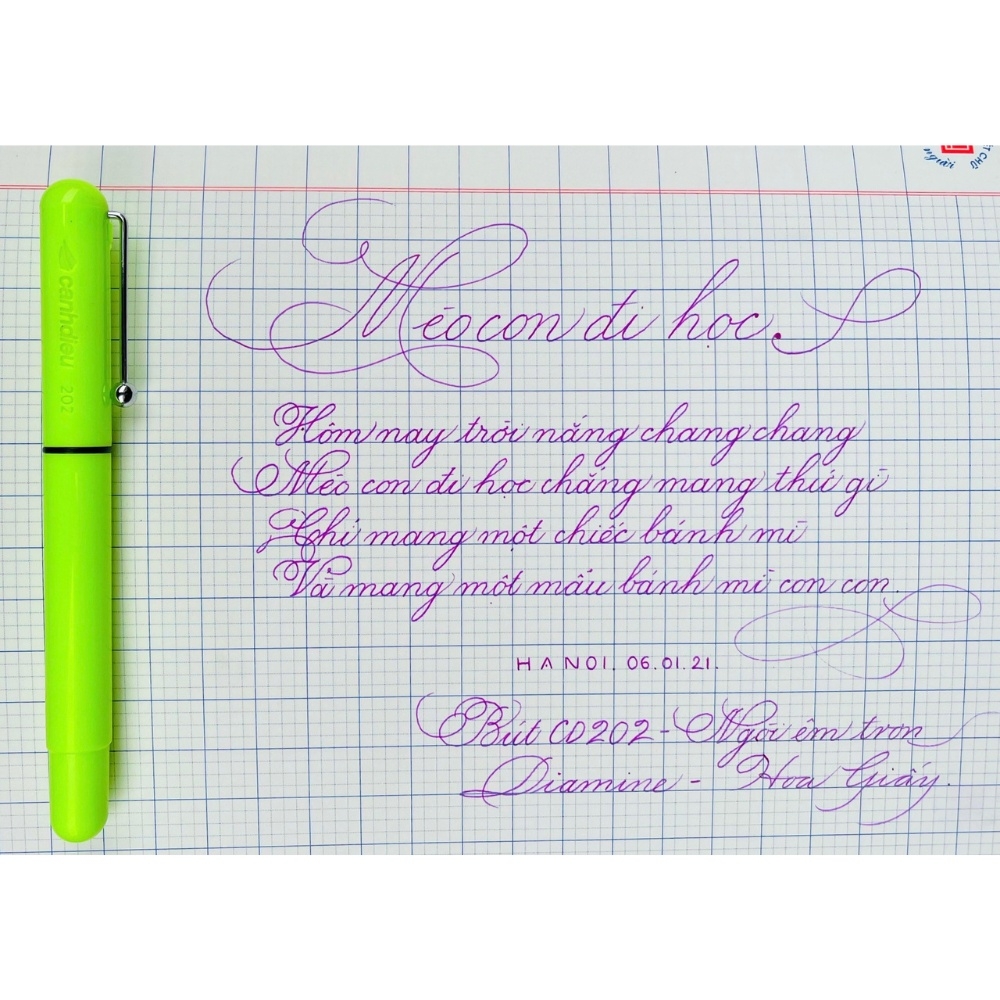 người
ẾT CHỮ
canhdieu 202
Mèo con đi học.
Hôm nay trời nắng chang chang
Mèo con đi học chẳng mang thứ gì
Chỉ mang một chiếc bánh mì
Và mang một mẩu bánh mì con con.
HANOI. 06.01.21.
Bút CD202 - Ngòi êm trơn
Diamine - Hoa Giấy.